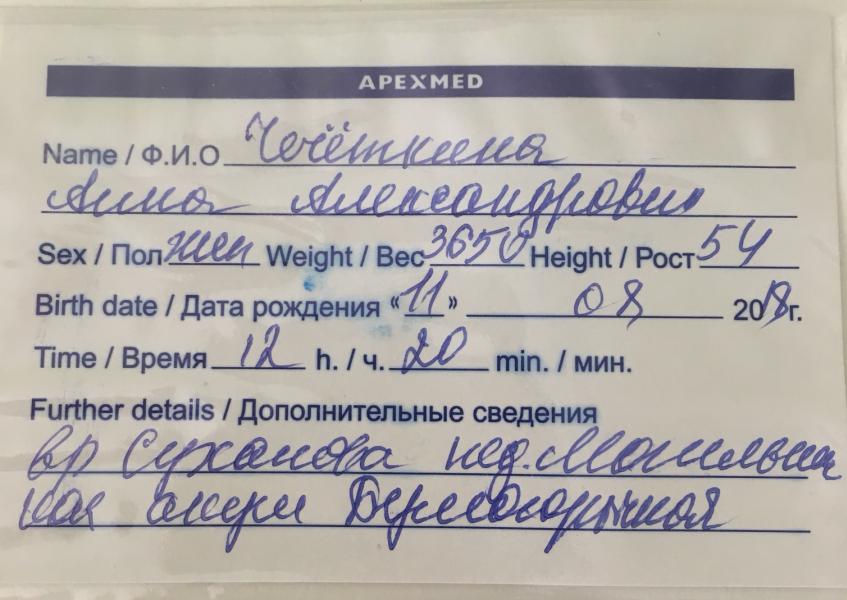 APEXMED
Name / Ф.И.О Чечёткина
Анна Александровн
Sex / Пол жен Weight / Вес 3650 Height / Рост 54
Birth date / Дата рождения «11» 08 2018г.
Time / Время 12 h. / ч. 20 min. / мин.
Further details / Дополнительные сведения
вр Суханова пед.
акуш